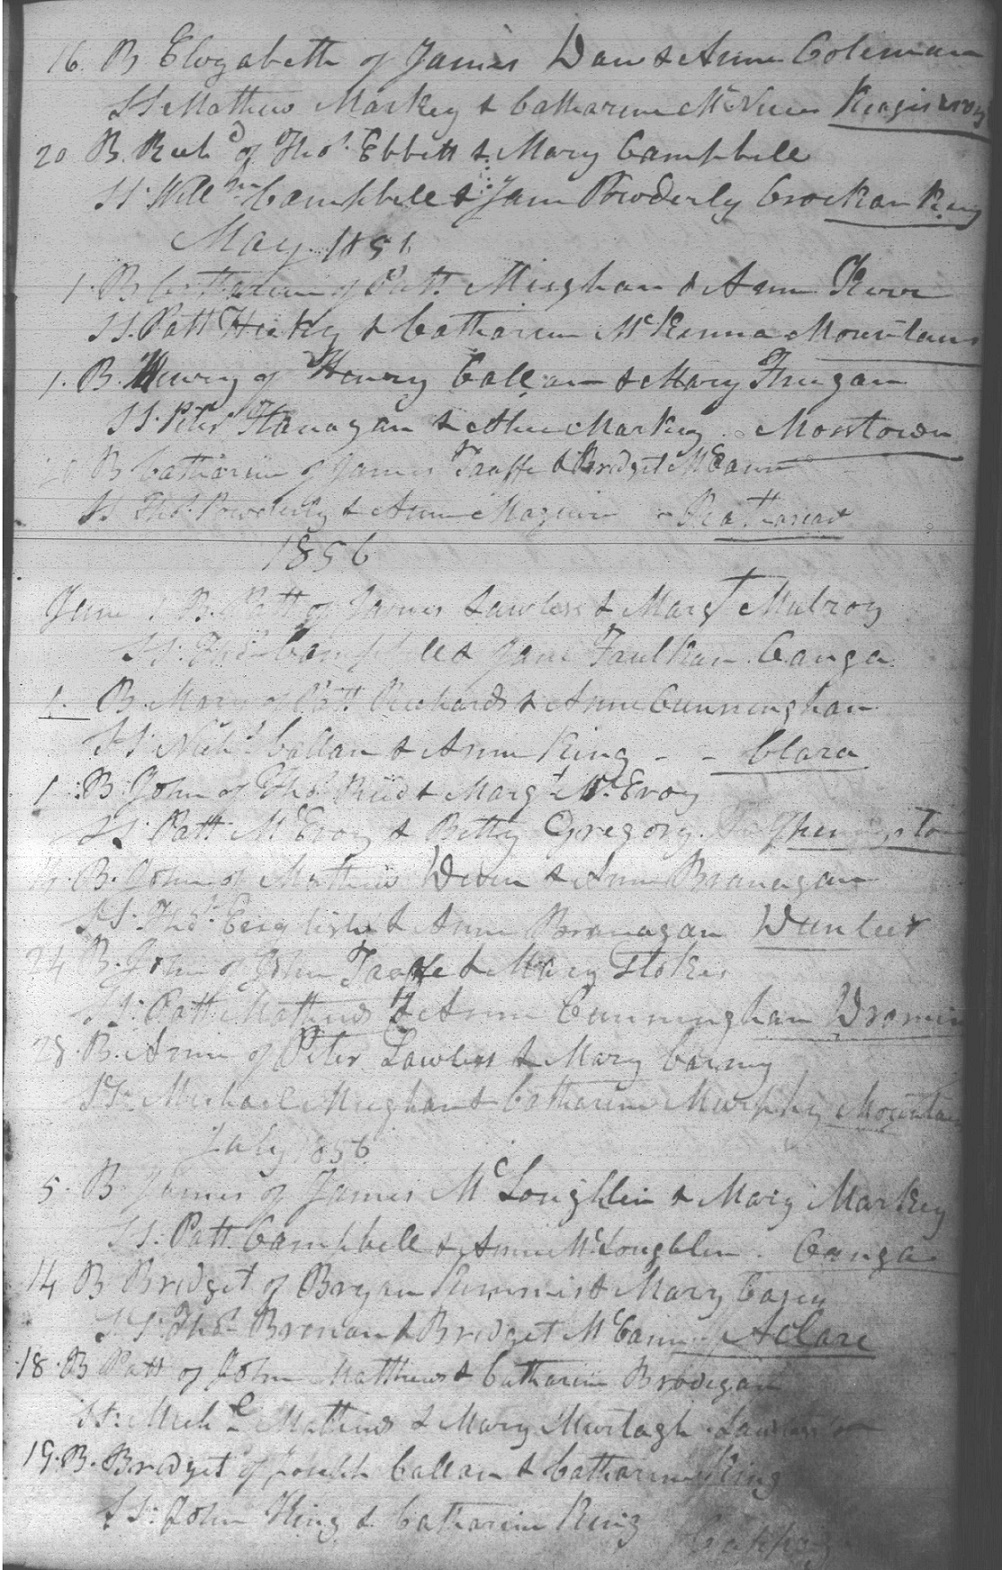 16. B Elizabeth of James Daw & Anne Coleman
SS Mathew Markey & Catharine McNiece
20 B. Richd of Thos. Ebbitt & Mary Campbell
SS Willm Campbell & Jane Powderly
May 1856
1. B Catharine of Patt. Meeghan & Ann Kerr
SS. Patt Hickey & Catharine McKenna Mountain
1. B. Henry of Henry Callan & Mary Finegan
SS. Peter Flanagan & Markey Mosstown
B Catharine of James Taaffe & Bridget McCann
SS Thos. Powderly & Ann Maguire
1856
June 1 B. Patt of James Lawless & Margt Mulroy
SS. Campbell & Jane Faulkan. Canga
1. B. Mary of Patt Richards & Anne Cunninghan
SS. Nichs Callan & Anne King - - Clara
1 B. John of Thos Reid & Margt McEvoy
SS. Patt. McEvoy & Betty Gregory.
B. John of Mathew Dean & Ann Branagan
SS. Thos. English & Anne Branagan Dunleer
24 B. John of John Taaffe & Mary Stokes
SS. Patt. Mathews & Anne Cunningham Dromin
28. B. Anne of Peter Lawless & Mary
SS. Michael Meeghan & Catharine Murphy Mountain
July 1856
5. B James of James McLoughlin & Mary Markey
SS. Patt. Campbell & Anne McLoughlin. Canga
14 B Bridget of Bryan & Mary Casey
SS. Thos. Brenan & Bridget McCann Aclare
18. B Patt of John Matthews & Catharine Brodigan
SS. Michl Mathews & Mary Murtagh
19. B. Bridget of Joseph Callan & Catharine King
SS. John King & Catharine King